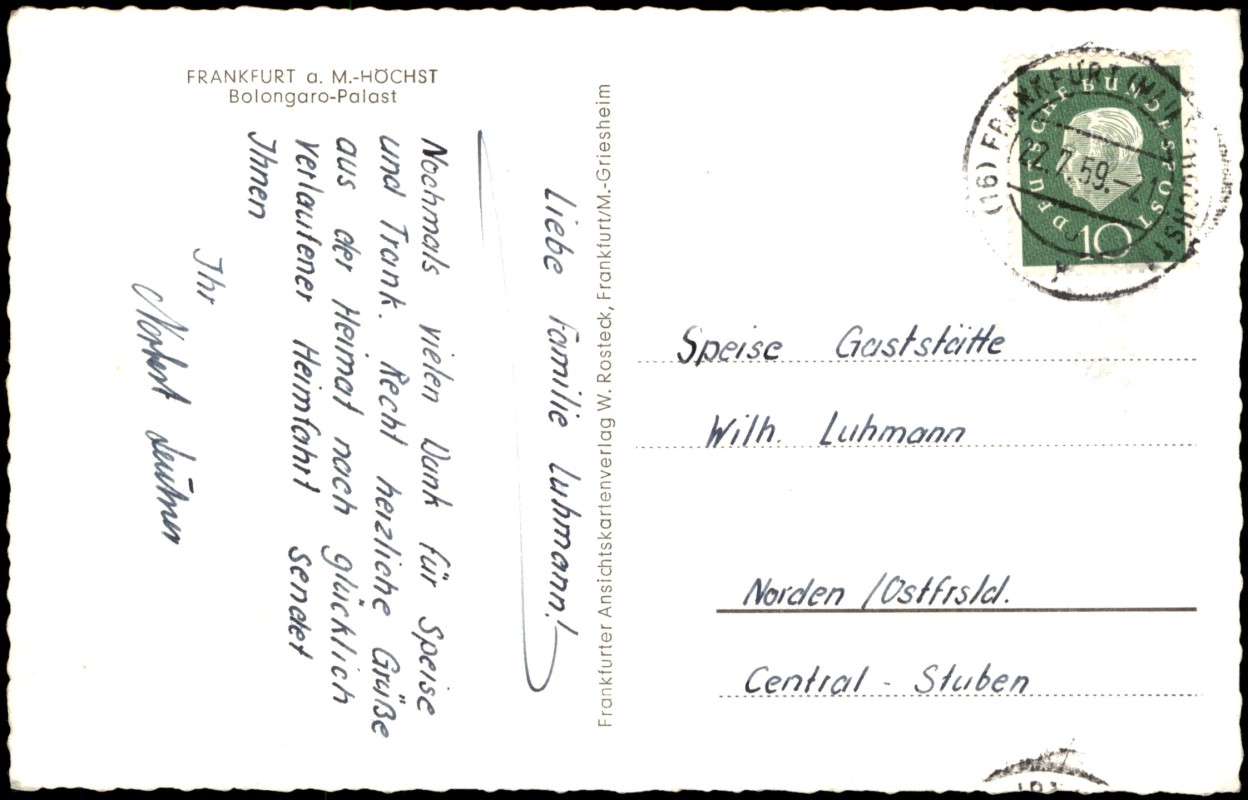 FRANKFURT a. M.-HÖCHST
Bolongaro-Palast
Liebe Familie Luhmann!
Nochmals vielen Dank für Speise
und Trank. Recht herzliche Grüße
aus der Heimat nach glücklich
verlaufener Heimfahrt sendet
Ihnen
Ihr
Norbert
Frankfurter Ansichtskartenverlag W. Rosteck, Frankfurt/M.-Griesheim
(16) FRANKFURT (MAIN)-HÖCHST
22.7.59.-21
DEUTSCHE BUNDESPOST
10
Speise Gaststätte
Wilh. Luhmann
Norden /Ostfrsld.
Central - Stuben